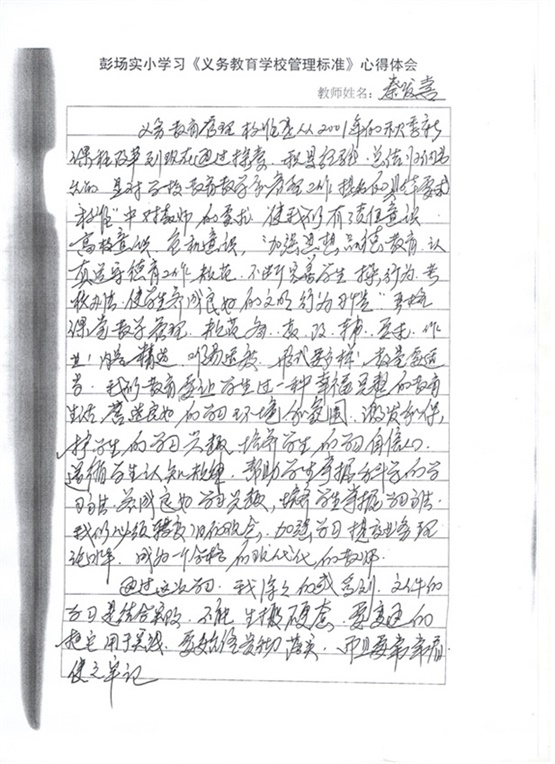 彭场实小学习《义务教育学校管理标准》心得体会
教师姓名：秦发喜
义务教育管理标准是从2001年的秋季新
课程改革到现在通过探索、积累经验、总结归纳
的 是对学校教育教学和管理工作提出的具体要求
标准"中对教师的要求 使我们有责任意识
高校意识、危机意识，"加强思想品德教育、认
真遵守德育工作规范、不断完善学生操行为考
核办法、使学生养成良好的文明行为习惯" 严格
课堂教学管理、规范备、教、改、辅、要求、作
业：内容精选、形式多样、数量要适
当、我们教育要让学生过一种幸福完整的教育
生活 营造良好的学习环境和氛围、激发和保
护学生的学习兴趣、培养学生的学习自信心、
遵循学生认知规律、帮助学生掌握科学的学
习方法、养成良好学习兴趣，培养学生掌握学习方法
我们必须转变旧的观念，加强学习提高业务理
论水平、成为一个合格的现代化的教师
通过这次学习、我深深的感受到、文件的
学习是结合实践、不能生搬硬套、要变通的
把它用于实践、要始终贯彻落实、而且要常常看
使之牢记